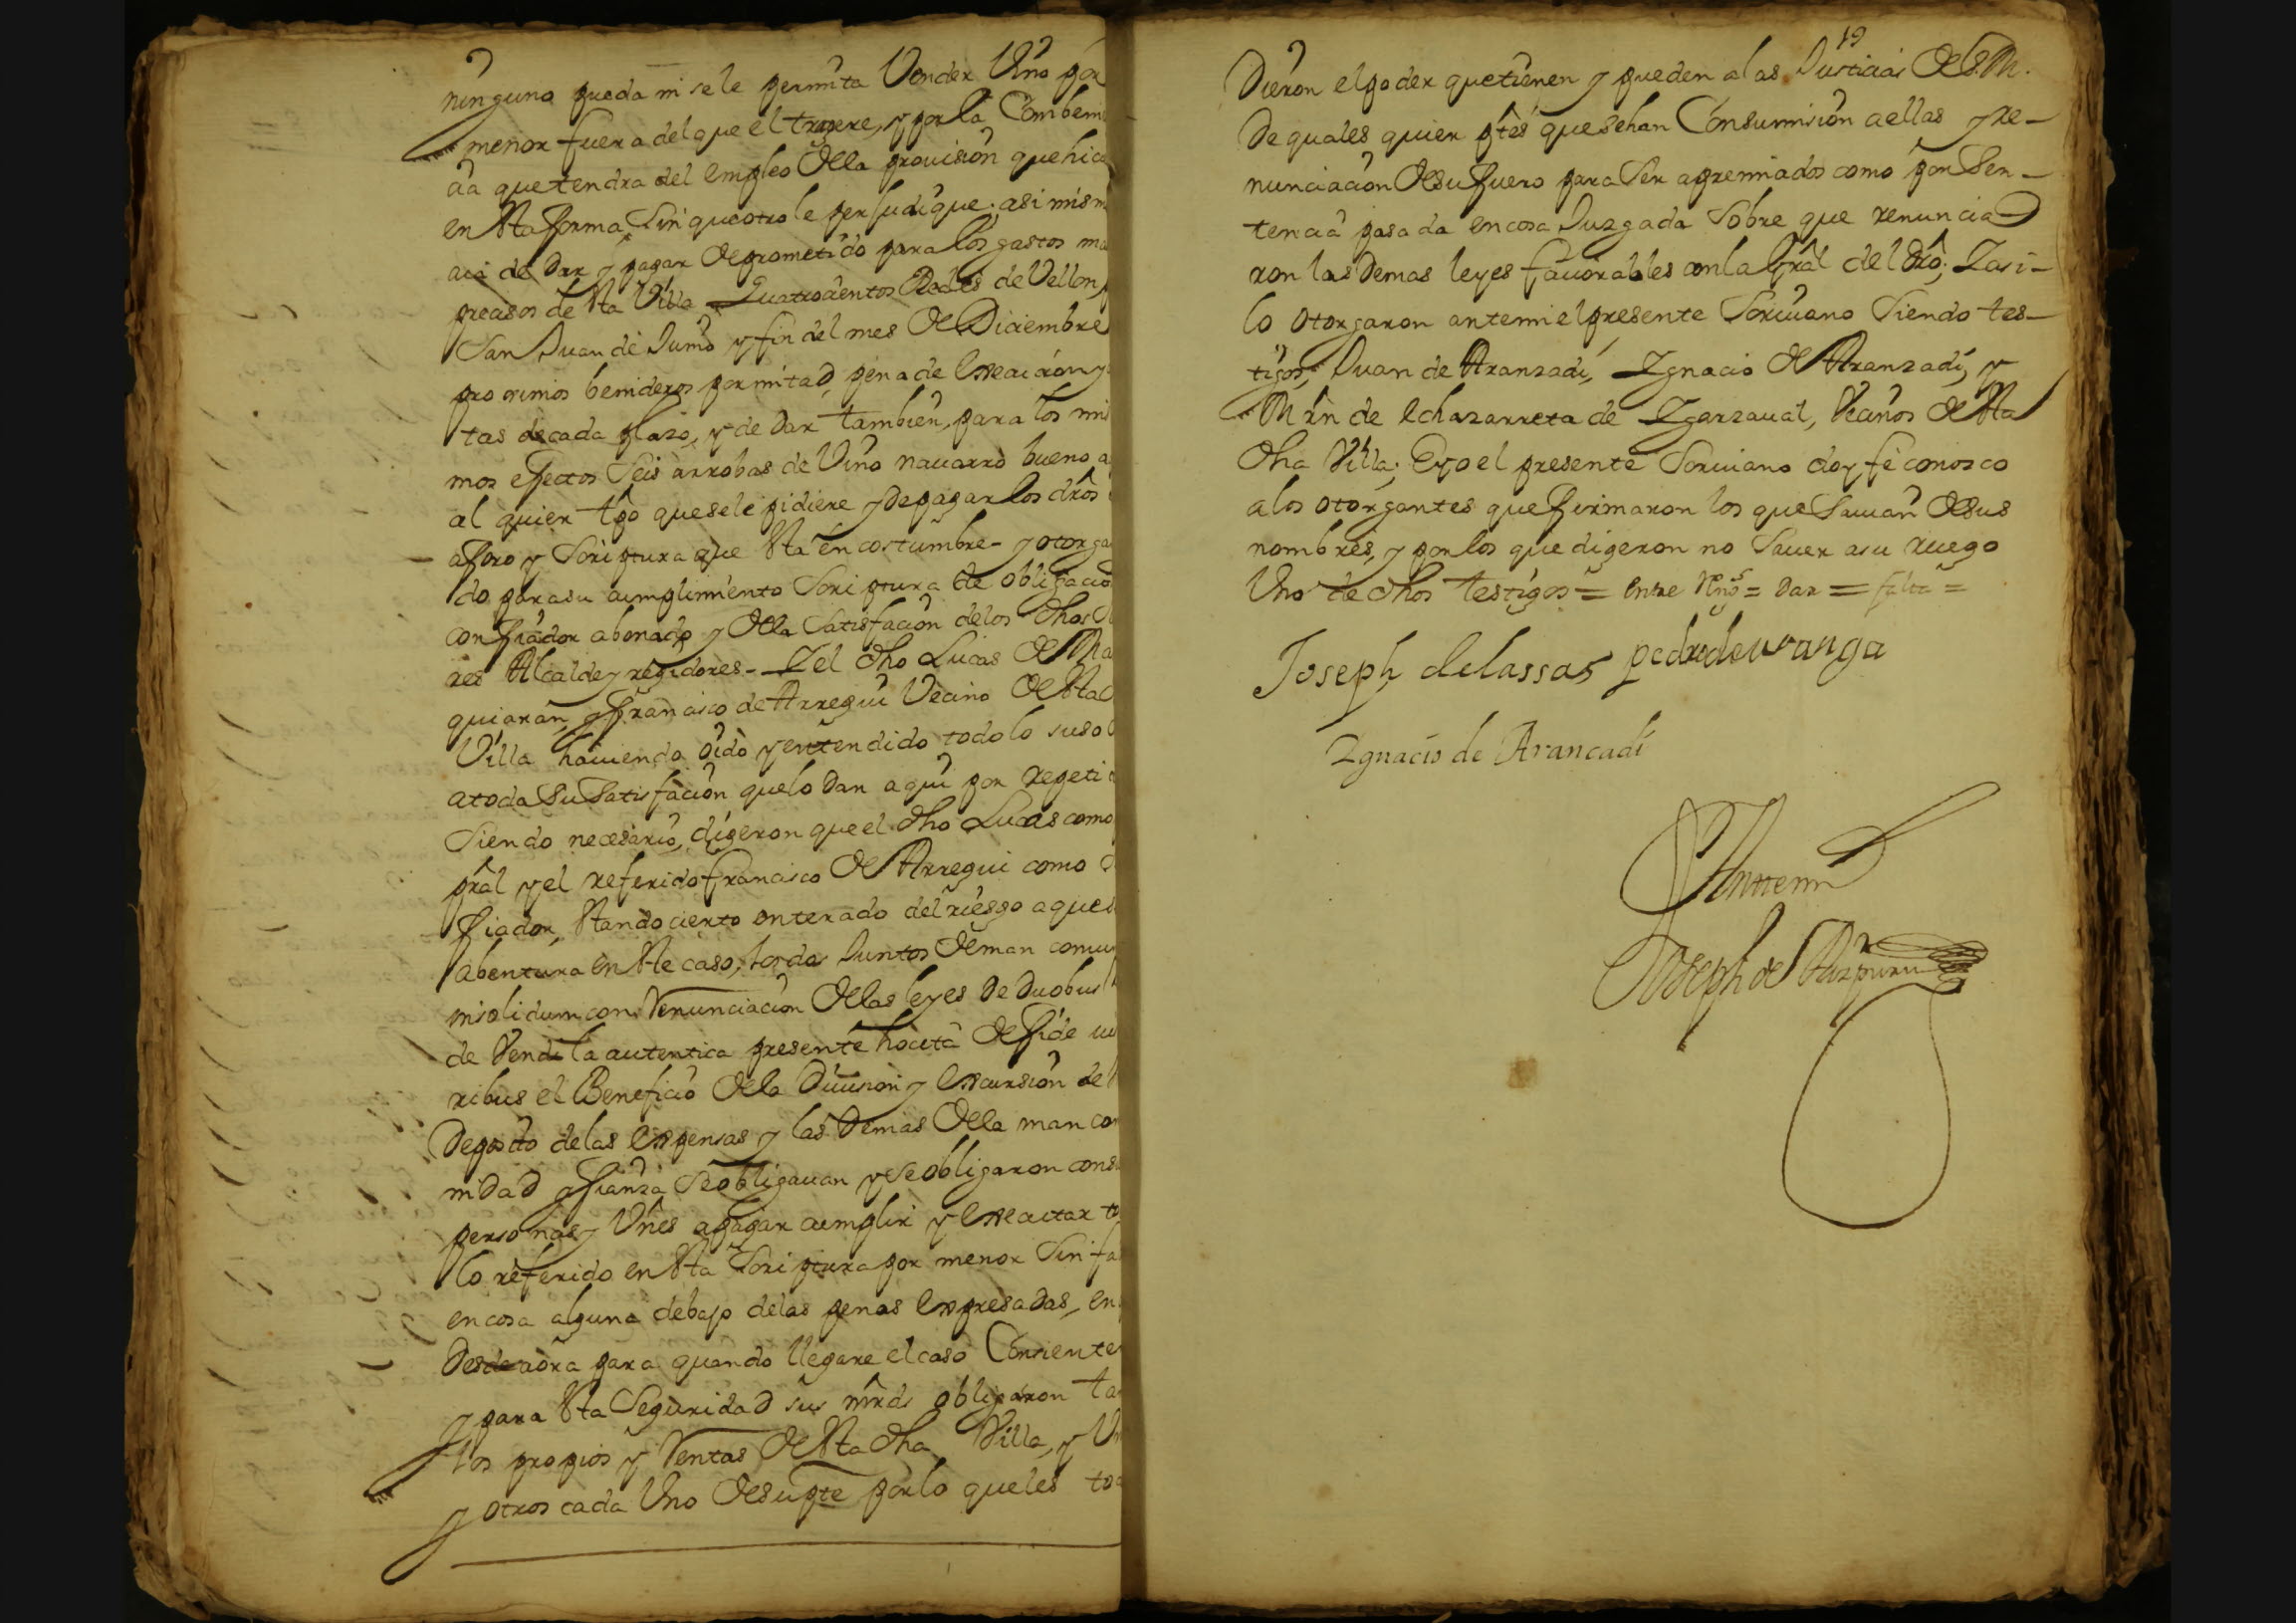 ninguno pueda ni se le permita Vender Vino por
menor fuera del que el trajere, y por la Combeni
cia que tendra del empleo de la provision que hic
en esta forma, sin que otro le perjudique; asi mism
aia de Dar y pagar de prometido para los gastos
precisos de esta Villa Quatrocientos Reales de Vellon,
San Juan de Junio y fin del mes de Diciembre
proximos benideros por mitad, pena de execucion y
tas de cada plazo, y de Dar tambien, para los mis
mos efectos Seis arrobas de Vino navarro bueno
al quier tpo que se le pidiere y de pagar los dros
aforo y Scriptura que esta en costumbre- y otorga
do para su cumplimiento Scriptura de obligacio
con fiador abonado y de la Satisfacion de los dhos
res Alcalde y regidores- Y el dho Lucas de Ma
quiaran, y Francisco de Arregui Vecino de esta
Villa haviendo oido y entendido todo lo suso
a toda su Satisfacion que lo Dan aqui por repeti
Siendo necesario, digeron que el dho Lucas como
pral y el referido Francisco de Arregui como
fiador, estando cierto enterado del riesgo a que
abentura en este caso, todos Juntos de man comun
insolidum con renunciacion de las leyes De Duobus
de Vendi la autentica presente hocita de fide
ribus el Beneficio de la Division y Excursion del
Deposito de las Expensas y las Demas de la man co
nidad y fianza Se obligavan y se obligaron con
personas y Vnes a pagar cumplir y executar
lo referido en esta Scriptura por menor Sin fa
en cosa alguna debajo de las penas Expresadas, en
Desde aora para quando llegare el caso Consiente
y para esta Seguridad sus mrds obligaron ta
los propios y rentas de esta dha Villa, y Un
y otros cada Uno de su pte por lo que les to
19
Dieron el poder que tienen y pueden a las Justicias de S.M.
De quales quier ptes que sehan Con sumision a ellas y re-
nunciacion de su fuero para Ser apremiados como por Sen-
tencia pasada en cosa Juzgada Sobre que renuncia
ron las Demas leyes favorables con la Gral del dro; Y asi-
lo otorgaron ante mi el presente Scrivano Siendo tes-
tigos, Juan de Aranzadi, Ygnacio de Aranzadi, y
Mrn de Echazarreta de Ygarzaval, Vecinos de esta
dha Villa; E yo el presente Scrivano doy fe conosco
a los otorgantes que firmaron los que Savian de sus
nombres, y por los que digeron no Saver a su ruego
Uno de dhos testigos = Entre Rnes = Dar = falta =
Joseph de lassas pedro de uranga
Ygnacio de Arancadi
Ante mi
Joseph de Aizpuru